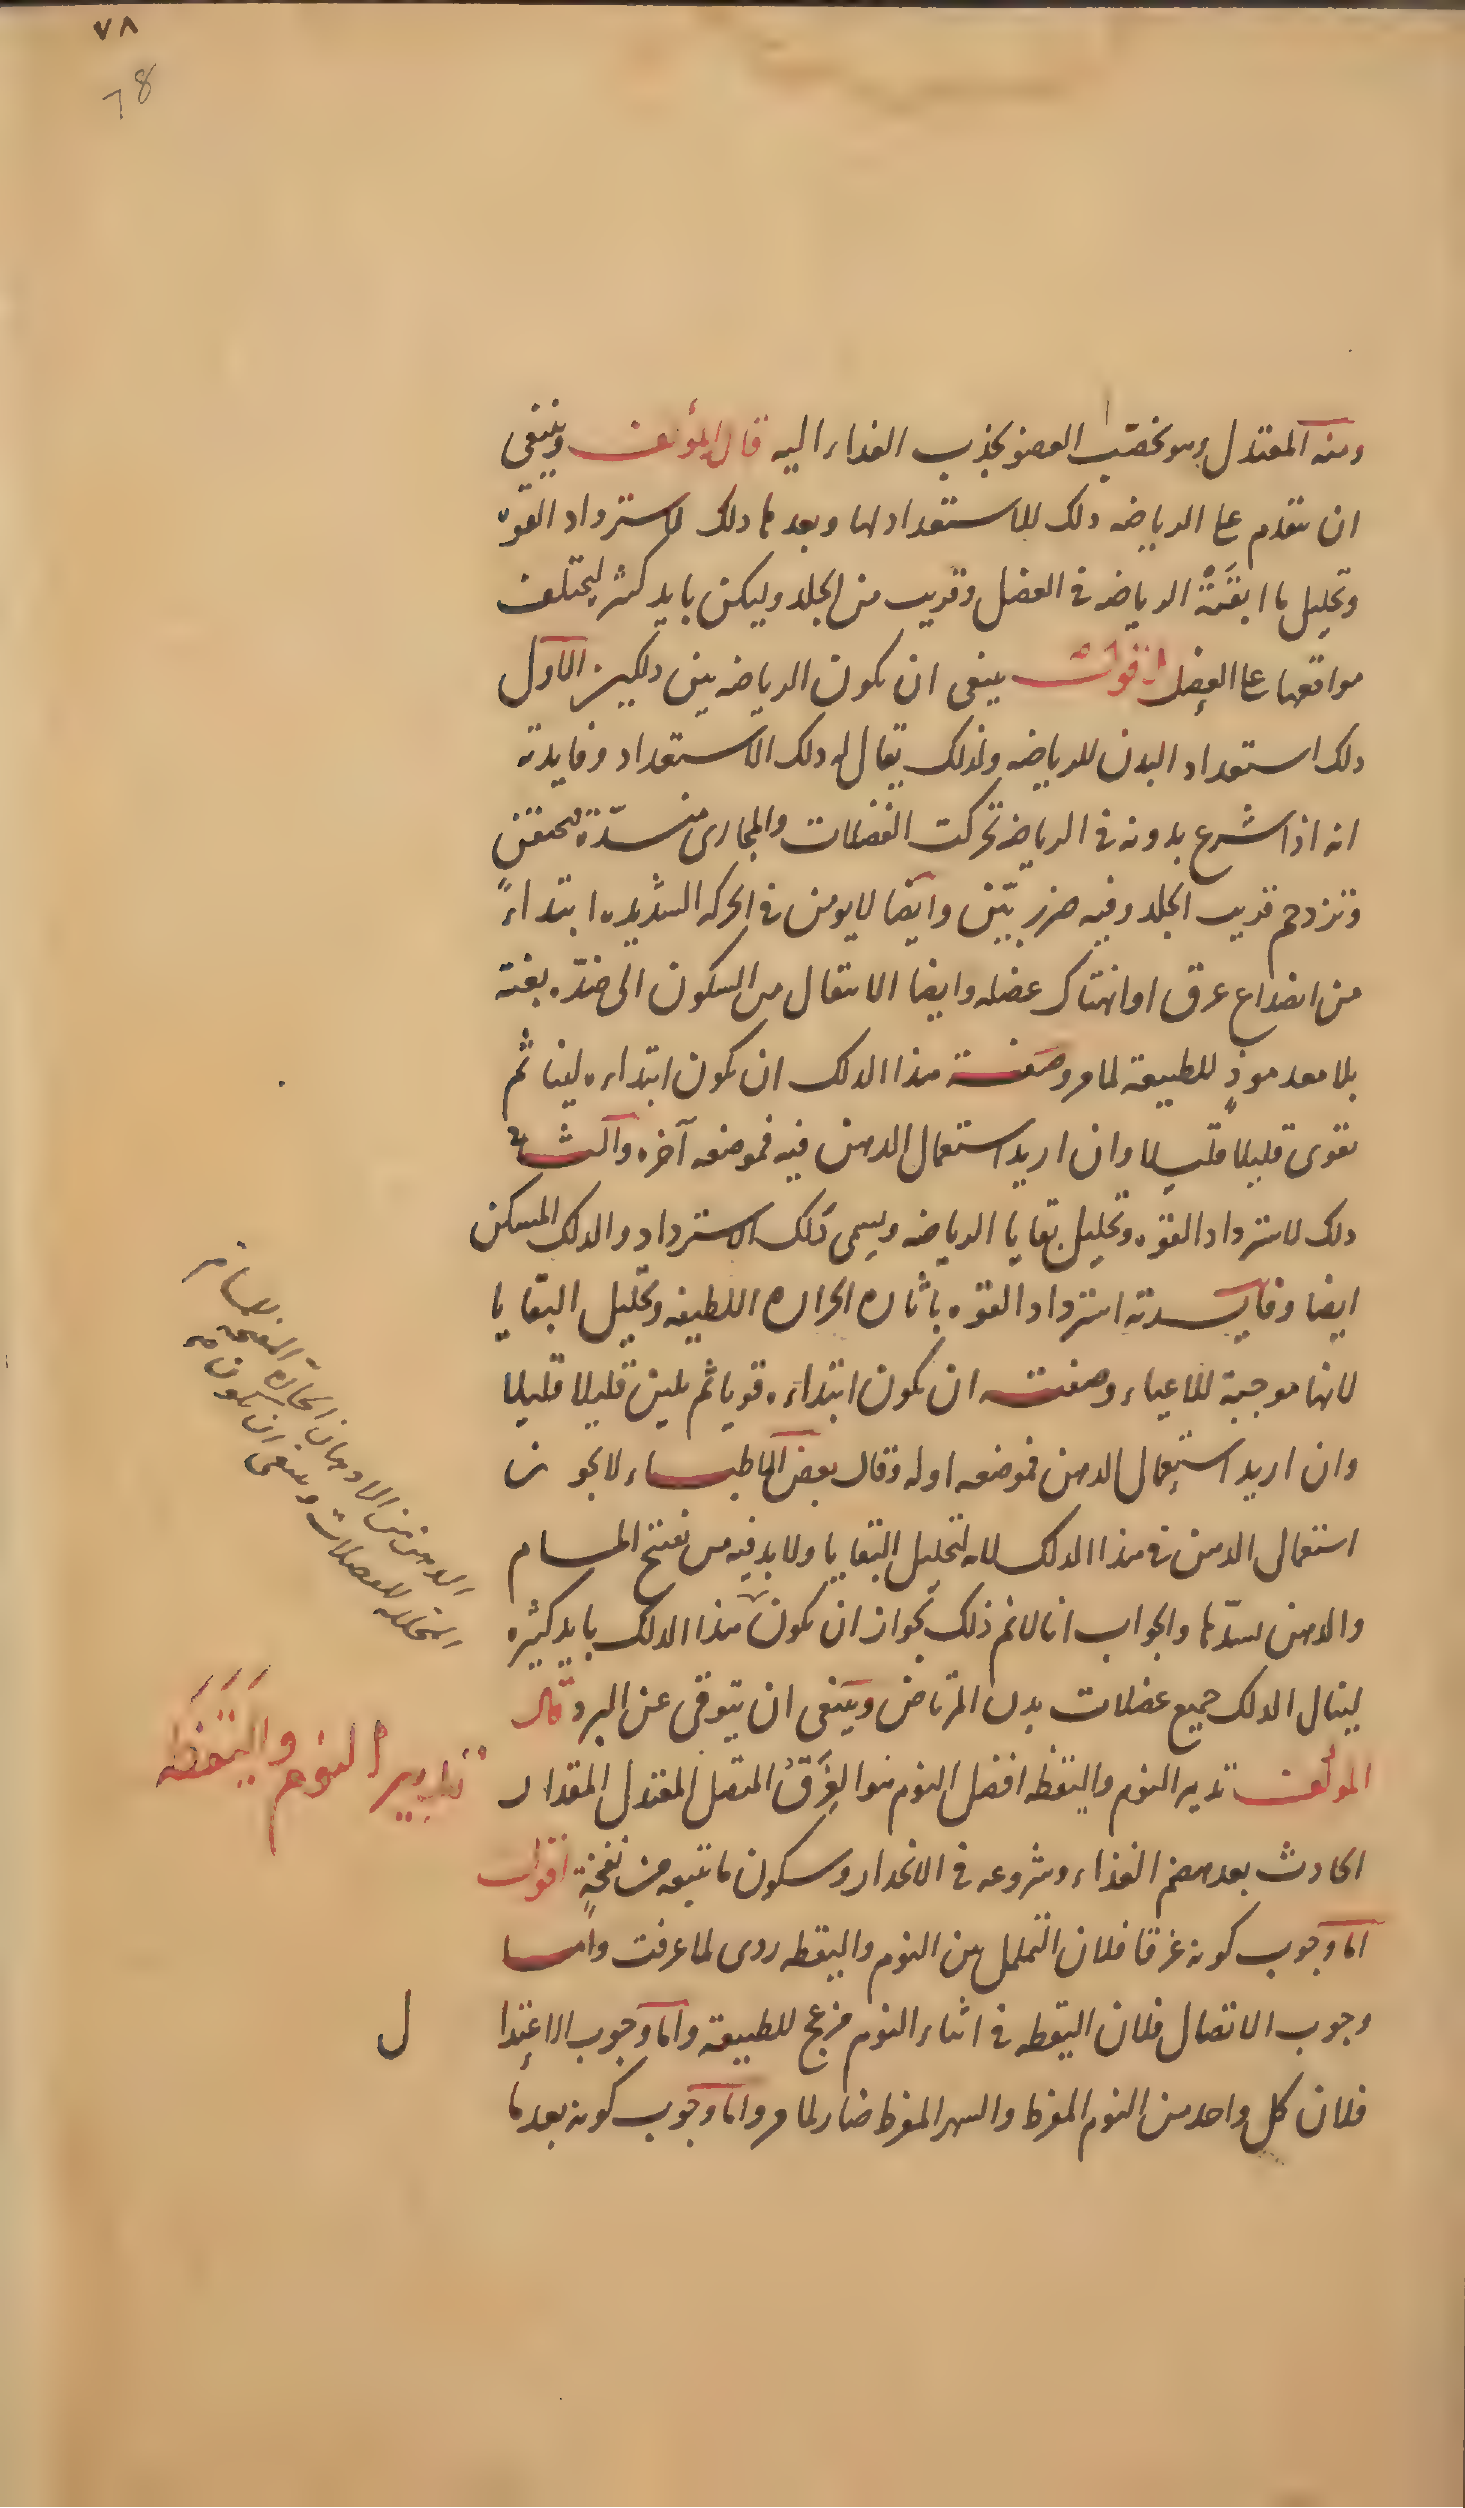 ٧٨
78
ومنه المعتدل وهو يخصب العضو بجذب الغذاء اليه قال المؤلف وينبغى
ان يتقدم على الرياضه دلك للاستعداد لها وبعدها دلك لاسترداد القوّة
وتحليل ما ابقته الرياضه فى العضل وقريب من الجلد وليكن بايد كثيرة ليختلف
مواقعها على العضل اقول ينبغى ان يكون الرياضه بين دلكين الاول
دلك استعداد البدن للرياضه ولذلك يقال له دلك الاستعداد وفايدته
انه اذا شرع بدونه فى الرياضه تحركت الفضلات والمجارى منسدّة فيحتقن
وتزدحم قريب الجلد وفيه ضرر بيّن وايضا لا يومن فى الحركه الشديده ابتداءً
من انصداع عرق او انهتاك عضله وايضا الانتقال من السكون الى ضدّه بغتة
بلا معد موذٍ للطبيعة لما مر وصفته هذا الدلك ان يكون ابتداءه لينا ثم
يقوى قليلا قليلا وان اريد استعمال الدهن فيه فموضعه آخره والثانى
دلك لاسترداد القوه وتحليل بقايا الرياضه ويسمى دلك الاسترداد والدلك المسكن
ايضا وفايدته استرداد القوه باثاره الحراره اللطيفه وتحليل البقايا
لانها موجبة للاعياء وصفته ان يكون ابتداءه قويا ثم يلين قليلا قليلا
وان اريد استعمال الدهن فموضعه اوله وقال بعض الاطباء لا يجوز
استعمال الدهن فى هذا الدلك لانه لتحليل البقايا ولا بد فيه من تفتيح المسام
والدهن يسدّها والجواب انا لا نم ذلك بجواز ان يكون هذا الدلك بايد كثيره
لينال الدلك جميع عضلات بدن المرتاض وينبغى ان يتوقى عن البرد قال
المؤلف تدبير النوم واليقظه افضل النوم هو الغرق المتصل المعتدل المقدار
الحادث بعد هضم الغذاء وشروعه فى الانحدار وسكون ما يتبعه من نفخة اقول
اما وجوب كونه غرقا فلان التململ بين النوم واليقظه ردى لما عرفت واما
وجوب الاتصال فلان اليقظه فى اثناء النوم مزعج للطبيعة واما وجوب الاعتدا
ل
فلان كل واحد من النوم المفرط والسهر المفرط ضار لما مر واما وجوب كونه بعدها
الدهن من الادهان الحارة المفتحة للمسام
المحللة للعضلات وينبغى ان يكون
تدبير النوم واليقظه